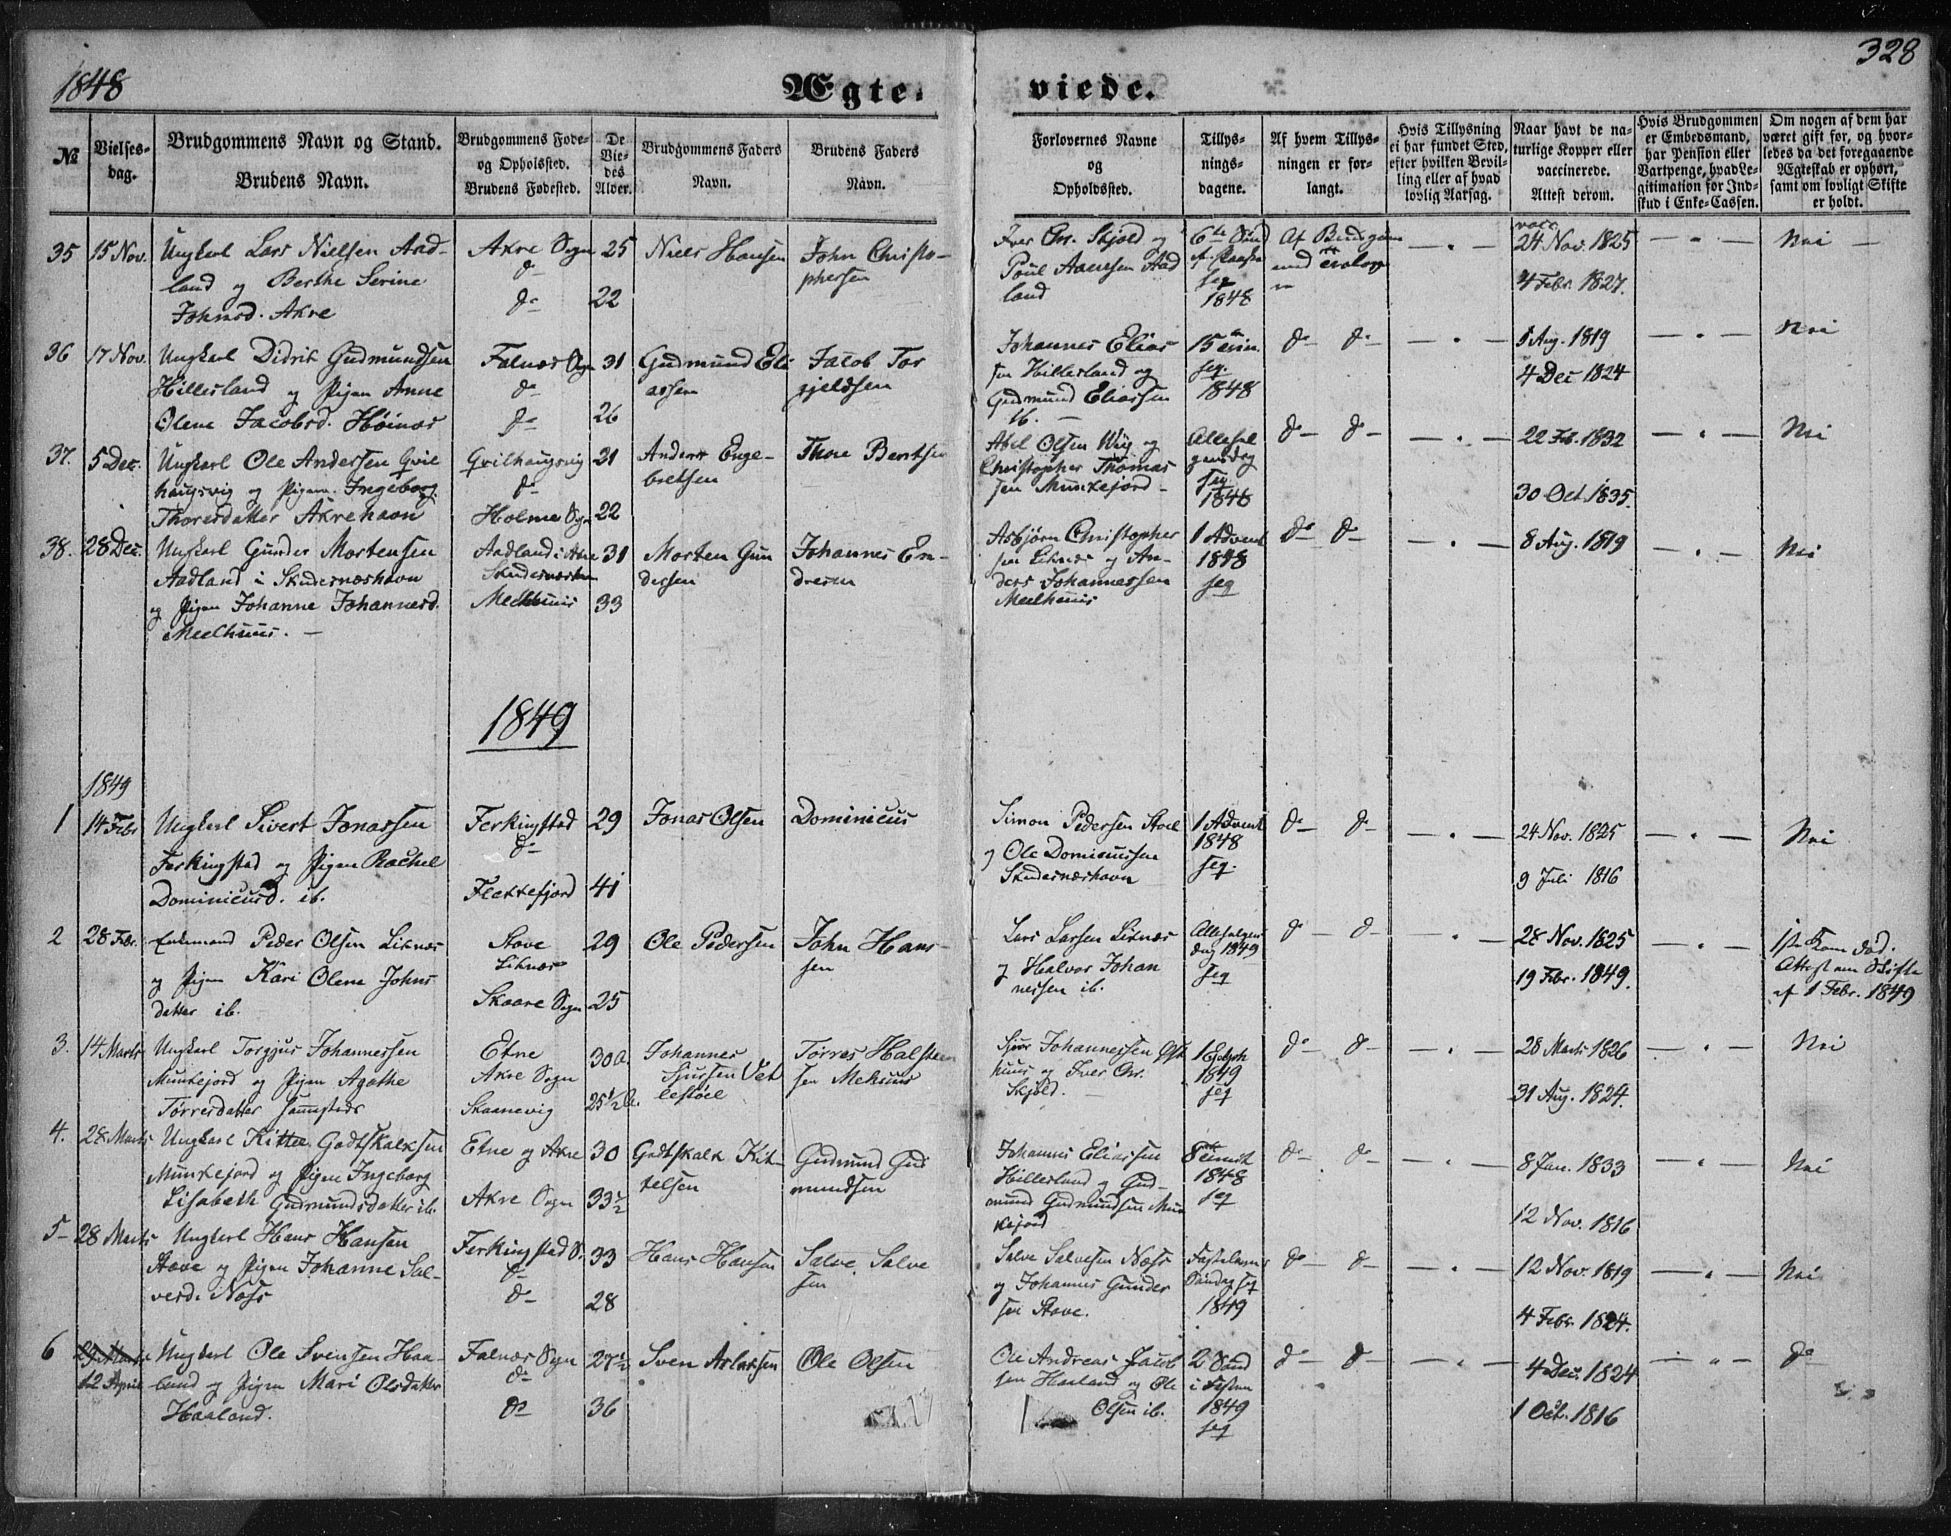 1848
Ægte-
viede.
328
№
Vielses-
dag.
Brudgommens Navn og Stand.
Brudens Navn.
Brudgommens Føde-
og Opholssted.
Brudens Fødested.
De
Vie-
des
Alder.
Brudgommens Faders
Navn.
Brudens Faders
Navn.
Forlovernes Navne
og
Opholdssted.
Tillys-
nings-
dagene.
Af hvem Tillys-
ningen er for-
langt.
Hvis Tillysning
ei har fundet Sted,
efter hvilken Bevil-
ling eller af hvad
lovlig Aarsag.
Naar havt de na-
turlige Kopper eller
vaccinerede.
Attest derom.
Hvis Brudgommen
er Embedsmand,
har Pension eller
Vartpenge, hvad Le-
gitimation for Ind-
skud i Enke-Cassen.
Om nogen af dem har
været gift før, og hvor-
ledes da det foregaaende
Ægteskab er ophørt,
samt om lovligt Skifte
er holdt.
35
15 Nov.
Ungkarl Lars Nielsen Aad-
land og Berthe Serine
Johnsd. Akre
Akre Sogn
d°
d°
25
22
Niels Hansen
John Christo-
phersen
Iver Chr. Skjold og
Poul Aanesen Aad
land
6te Sønd
seq
1848
Af Brudgom
vacc
24 Nov. 1825
4 Febr. 1827.
Nei
36
17 Nov.
Ungkarl Didrik Gudmundsen
Hillesland og Pigen Anne
Olene Jacobsd. Høinæs
Falnæs Sogn
d°
d°
31
26
Gudmund Eli
assen
Jacob Tor
gjeldsen
Johannes Elias
sen Hillesland og
Gudmund Eliassen
ib.
15
seq.
1848
d° d°
1 Aug. 1819
4 Dec 1824
Nei
37.
5 Dec.
Ungkarl Ole Andersen Qvil
haugsvig og Pigen Ingeborg
Thoresdatter Akrehavn
Qvilhaugsvig
d°
Holme Sogn
21
22
Anders Enge-
bretsen
Thore Bentsen
Abel Olsen Wiig og
Christopher Thomas
sen Munkejord
Allehel
gensdag
seq
1848
d° d°
22 Feb. 1832
30 Oct. 1835.
Nei
38.
28 Dec.
Ungkarl Gunder Mortensen
Aadland i Skudesnæshavn
og Pigen Johanne Johannesd.
Meelhuus.
Aadland i Akre
Skudesnæshavn
Meelhuus
31
33
Morten Gun
dersen
Johannes En-
dresen
Asbjørn Christopher
sen Liknæs og An-
ders Johannessen
Meelhuus
1 Advent
1848
seq
d° d°
8 Aug. 1819
Nei
1849
1849
1
14 Febr
Ungkarl Sivert Jonassen
Ferkingstad og Pigen Rachel
Dominicusd. ib.
Ferkingstad
d°
Flekkefjord
29
41
Jonas Olsen
Dominicus
Simon Pedersen Stoel
og Ole Dominicussen
Skudesnæshavn
1 Advent
1848
seq.
d° d°
24 Nov. 1825
9 Juli 1816
Nei
2
28 Febr.
Enkemand Peder Olsen Liknæs
og Pigen Kari Olene Johns
datter ib.
Stove
Liknæs
Skaare Sogn
29
25
Ole Pedersen
John Hans-
sen
Lars Larsen Liknæs
og Halvor Johan
nessen ib.
Allehelgens
dag 1849
seq
d° d°
28 Nov. 1825
19 Febr. 1849.
1ste Kone død.
Attest om Skifte
af 1 Febr. 1849
3.
14 Marts
Ungkarl Torgjus Johannessen
Munkejord og Pigen Agathe
Tørresdatter
Etne
Akre Sogn
Skaanevig
30
25 1/2
Johannes
Sjursen Vet
lestøel
Tørres Halsteen
sen Mehuus
Sjur Johannessen
huus og Iver Chr.
Skjold.
1 Epiph
1849
seq
d° d°
28 Marts 1826
31 Aug. 1824.
Nei
4.
28 Marts
Ungkarl Kittel Godtskalksen
Munkejord og Pigen Ingeborg
Lisabeth Gudmundsdatter ib.
Etne og Akre
Akre Sogn
30
33 1/2
Godtskalk Kit-
telsen
Gudmund Gud
mundsen
Johannes Eliassen
Hillesland og Gud-
mund Gudmundsen Mun
kejord
8
1848
seq
d° d°
8 Jan. 1833
12 Nov. 1816
Nei
5
28 Marts
Ungkarl Hans Hansen
Stove og Pigen Johanne Sal-
vesd. Næss
Ferkingstad S.
d°
d°
33
28
Hans Hansen
Salve Salve
sen
Salve Salvesen Næss
og Johannes Gunder
sen Stove.
Fastelavns
Søndag seq
1849
d° d°
12 Nov. 1819
4 Febr. 1824.
Nei
6
29 Marts
12 April
Ungkarl Ole Svensen Haa-
land og Pigen Mari Olsdatter
Haaland.
Falnæs Sogn
d°
d°
27 1/2
36
Sven Aslassen
Ole Olsen
Ole Andreas Jacob
sen Haaland og Ole
Olsen ib.
2 Sønd
i Fasten
1849
seq
d° d°
4 Dec. 1824
1 Oct. 1816
d°